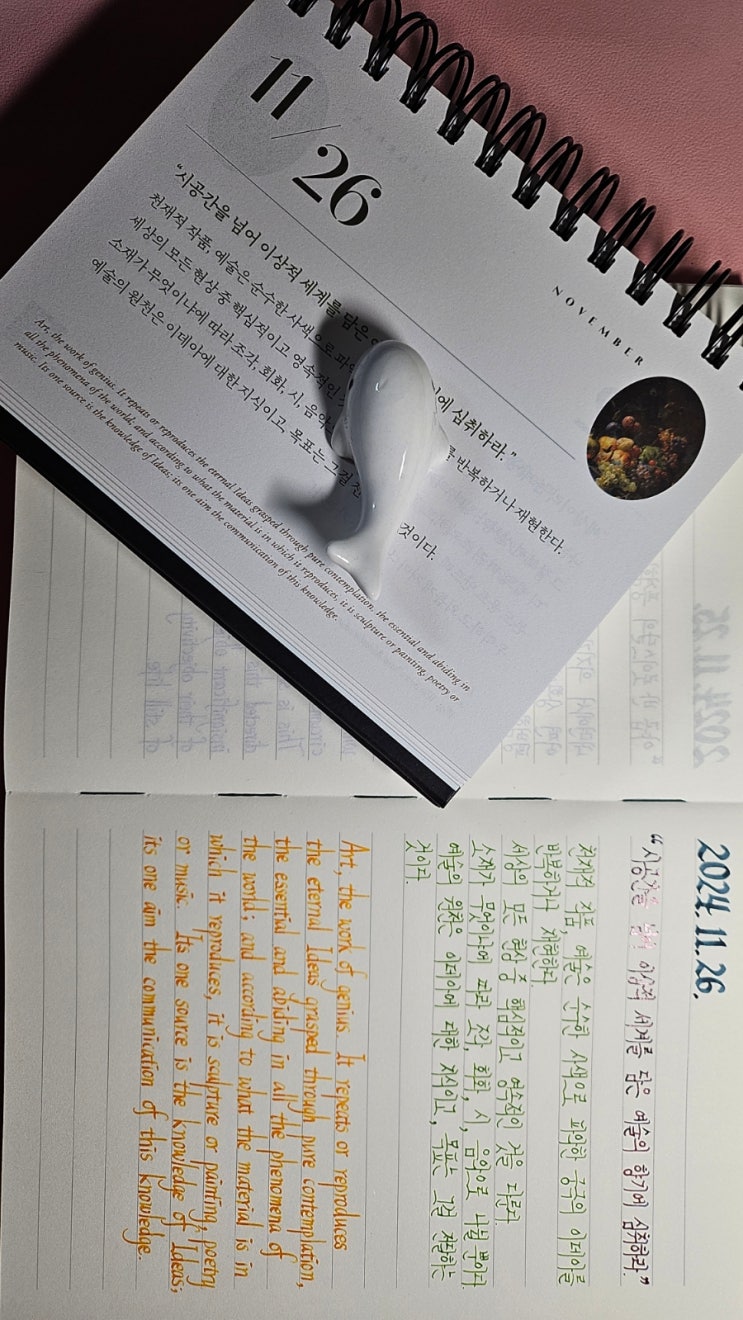 11
26
NOVEMBER
“시공간을 넘어 이상적 세계를 담은 에 심취하라.”
천재적 작품, 예술은 순수한 사색으로 를 반복하거나 재현한다.
세상의 모든 현상 중 핵심적이고 영속적인
소재가 무엇이냐에 따라 조각, 회화, 시, 음악
예술의 원천은 이데아에 대한 지식이고, 목표는 그걸 것이다.
Art, the work of genius. It repeats or reproduces the eternal Ideas grasped through pure contemplation, the essential and abiding in
all the phenomena of the world; and according to what the material is in which it reproduces, it is sculpture or painting, poetry or
music. Its one source is the knowledge of Ideas; its one aim the communication of this knowledge.
2024. 11. 26.
“시공간을 넘어 이상적 세계를 담은 예술의 향기에 심취하라.”
천재적 작품, 예술은 순수한 사색으로 파악한 궁극의 이데아를
반복하거나 재현한다
세상의 모든 현상 중 핵심적이고 영속적인 것을 다룬다.
소재가 무엇이냐에 따라 조각, 회화, 시, 음악으로 나뉠 뿐이다.
예술의 원천은 이데아에 대한 지식이고, 목표는 그걸 전달하는
것이다.
Art, the work of genius. It repeats or reproduces
the eternal Ideas grasped through pure contemplation,
the essential and abiding in all the phenomena of
the world; and according to what the material is in
which it reproduces, it is sculpture or painting, poetry
or music. Its one source is the knowledge of Ideas;
its one aim the communication of this knowledge.
2024. 11. 25.